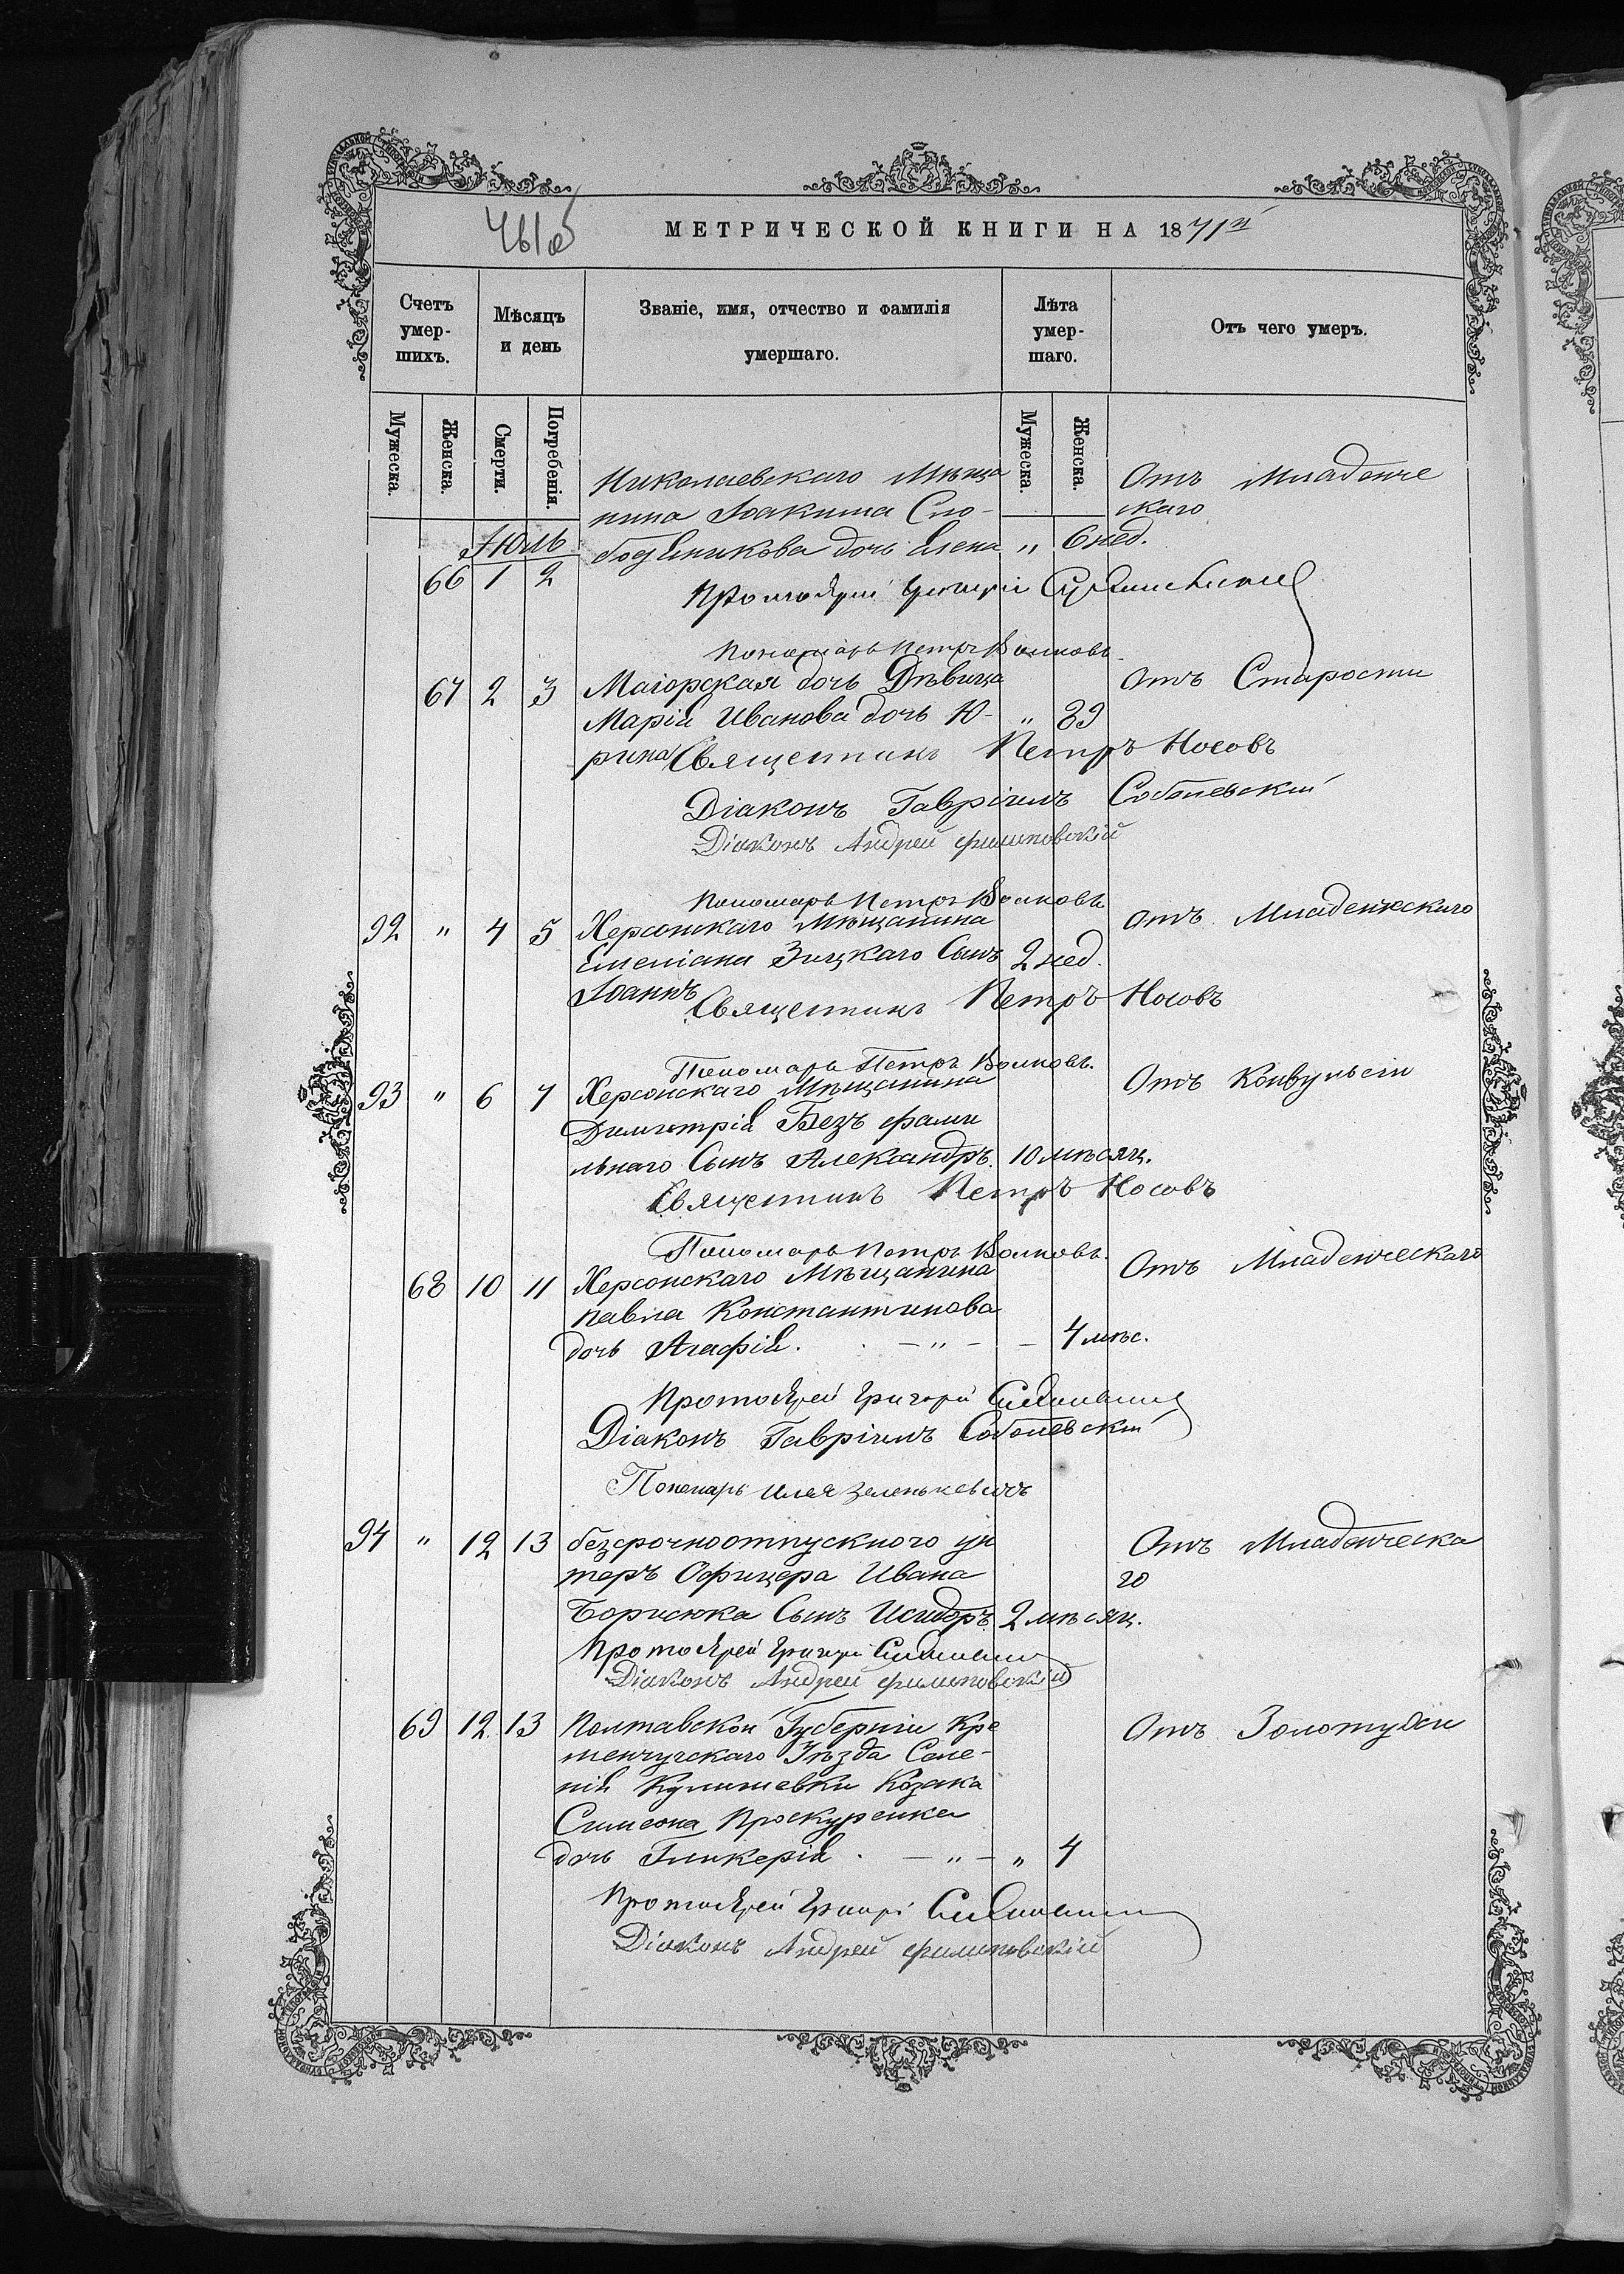 МЕТРИЧЕСКОЙ КНИГИ НА 1871й
Счетъ умер-шихъ.
Мѣсяцъ и день
Званіе, имя, отчество и фамилія умершаго.
Лѣта умер-шаго.
Отъ чего умеръ.
Мужеска. Женска. Смерти. Погребенія. Мужеска. Женска.
Николаевскаго Мѣща Отъ Младенче
нина Іоакима Сло- скаго
Іюль
бодяникова дочь Елена „ 6 нед.
66 1 2
Протоіерей Григорій
Пономарь Петръ Волковъ
67 2 3 Маіорская дочь Дѣвица отъ Старости
Марія Иванова дочь Ю- „ 89
рина Священникъ Петръ Носовъ
Діаконъ Гавріилъ Соболевскій
Діаконъ Андрей Филиповскій
Пономарь Петръ Волковъ
92 „ 4 5 Херсонскаго Мѣщанина отъ Младенческаго
Емеліана Зицкаго Сынъ 2 нед.
Іоаннъ Священникъ Петръ Носовъ
Пономарь Петръ Волковъ.
93 „ 6 7 Херсонскаго Мѣщанина Отъ Конвульсіи
Димитрія Безъ фами
льнаго Сынъ Александръ. 10 мѣсяц.
Священникъ Петръ Носовъ
Пономарь Петръ Волковъ.
68 10 11 Херсонскаго Мѣщанина Отъ Младенческаго
Павла Константинова
дочь Агафія. — „ — — 4 мѣс.
Протоіерей Григорій
Діаконъ Гавріилъ Соболевскій
Пономарь Илья Зеленькевичъ
94 „ 12 13 безсрочноотпускного ун Отъ Младенческа
теръ Офицера Ивана го
Борисюка Сынъ Исидоръ 2 мѣсяц.
Протоіерей Григорій
Діаконъ Андрей Филиповскій
69 12 13 Полтавской Губерніи Кре Отъ Золотухи
менчугскаго Уѣзда Селе-
нія Кулишевки Козака
Симеона Проскуренка
дочь Гликерія. — „ — „ 4
Протоіерей Григорій
Діаконъ Андрей Филиповскій